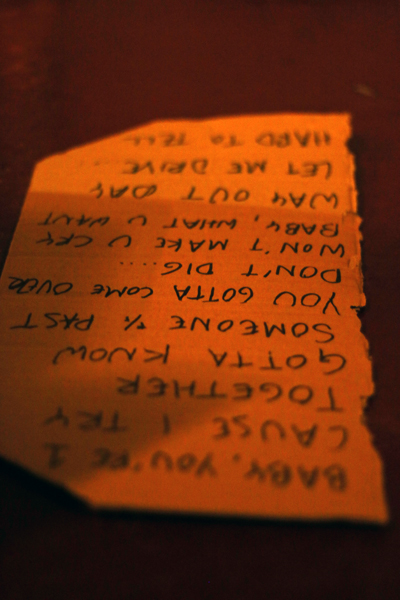 BABY, YOU'RE 1
CAUSE I TRY
TOGETHER
GOTTA KNOW
SOMEONE % PAST
YOU GOTTA COME OVER
DON'T DIG....
WON'T MAKE U CRY
BABY, WHAT U WANT
WAY OUT DAY
LET ME DRIVE...
HARD TO TELL